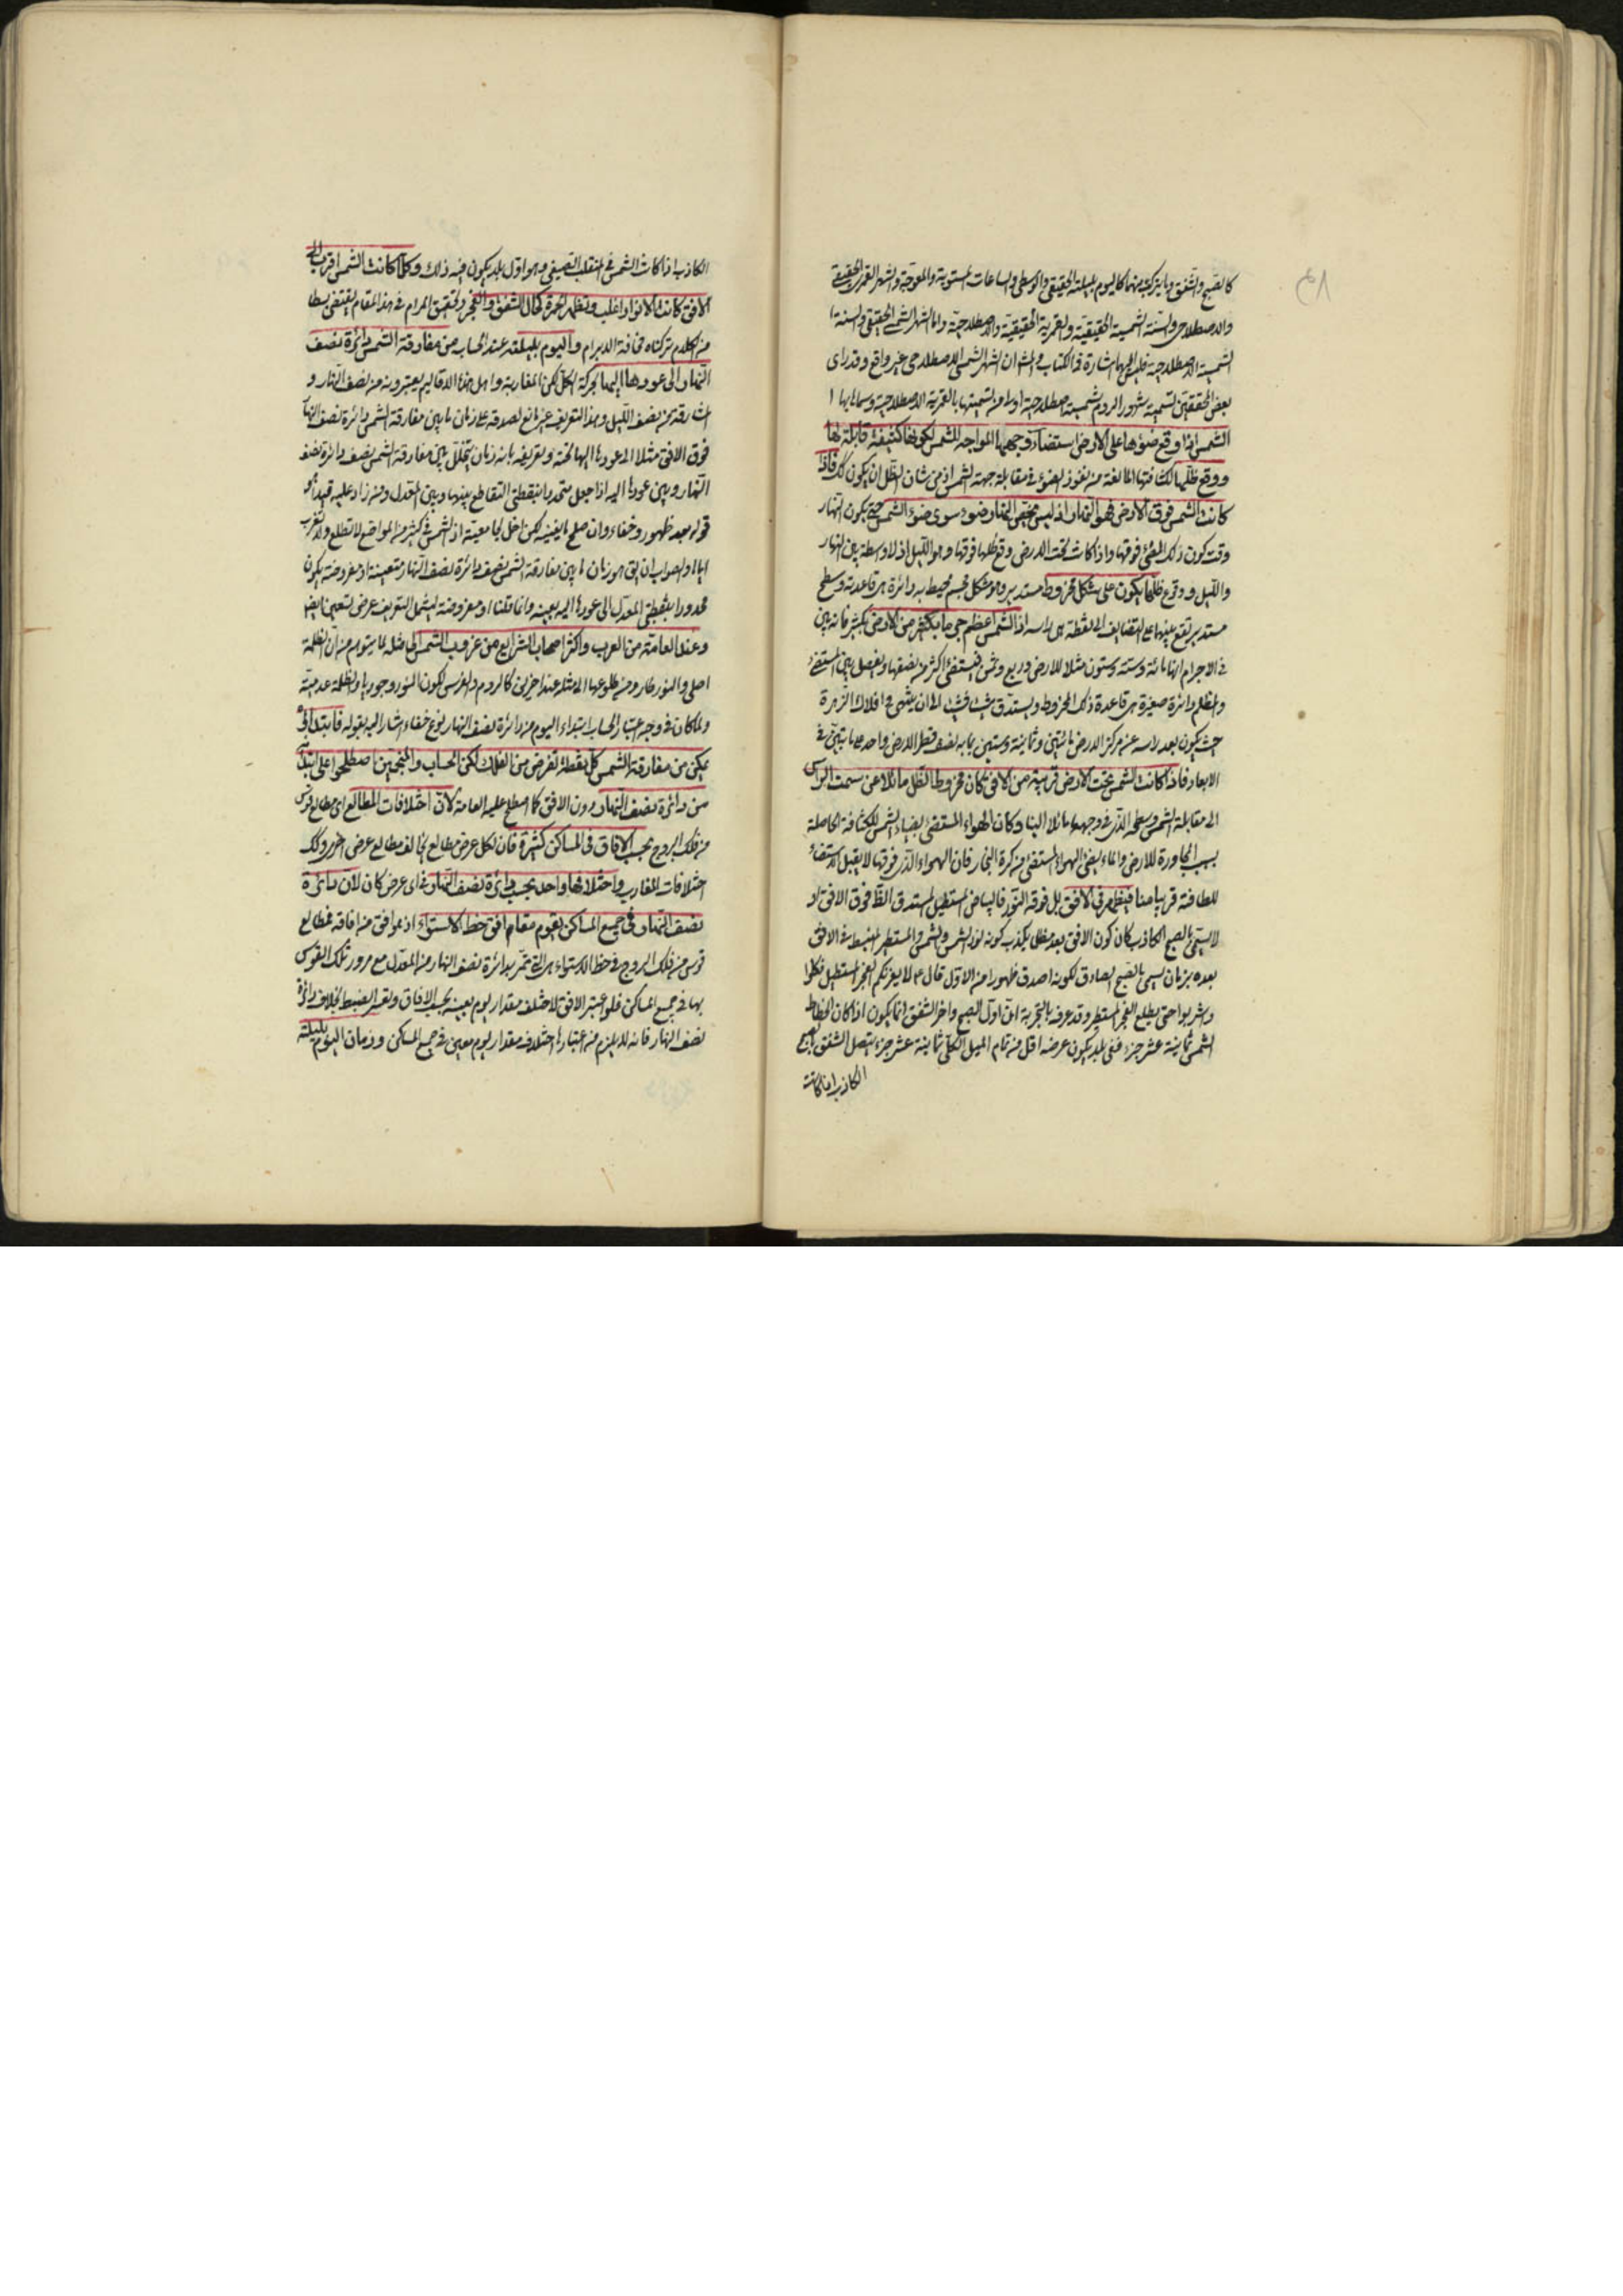 كالصبح والشفق وما يتركب منهما كاليوم بليلته الحقيقي والوسطى والساعات المستوية والمعوجة والشهر القمرى الحقيقى
والاصطلاحى والسنة الشمسية الحقيقية والقمرية الحقيقية والاصطلاحية واما الشهر الشمسى الحقيقى والسنة
الشمسية الاصطلاحية فليس اليهما اشارة فى الكتاب والمشهور ان الشهر الشمسى الاصطلاحى غير واقع وقد راى
بعض المحققين تسمية شهور الروم شمسية اصطلاحية اولى من تسميتها بالقمرية الاصطلاحية وسماها بها
الشمس اذا وقع ضوءها على الارض استضاء وجهها المواجه للشمس لكونها كثيفة قابلة لها
ووقع ظلها لكثافتها المانعة من نفوذ الضوء فى مقابلة جهة الشمس اذ من شان الظل ان يكون كذلك فاذا
كانت الشمس فوق الارض فهو النهار اذ ليس مختص النهار ضوء سوى ضوء الشمس حتى يكون النهار
وقت كون ذلك المضئ فوقها واذا كانت تحت الارض وقع ظلها فوقها وهو الليل اذ لا وسطة بين النهار
والليل ووقوع ظلها يكون على شكل مخروط مستدير وهو شكل مجسم محيط به دائرة هى قاعدته وسطح
مستدير يرتفع عنها على التضايف الى نقطة هى راسه اذ الشمس اعظم جرما بكثير من الارض بكثير فانه بين
فى الاجرام انها مائة وستة وستون مثلا للارض وربع وثمن فيستضئ اكثر من نصفها ويفصل بين المستضئ
والمظلم دائرة صغيرة هى قاعدة ذلك المخروط ويستدق شيئا فشيئا الى ان ينتهى فى افلاك الزهرة
حيث يكون بعد راسه عن مركز الارض مائتين وثمانية وستين بما به نصف قطر الارض واحد على ما تبين فى
الابعاد فاذا كانت الشمس تحت الارض قريبة من الافق كان مخروط الظل مائلا عن سمت الراس
الى مقابلة الشمس وسطحه الذى فى وجهها مائلا الينا وكان الهواء المستضئ بضياء الشمس للكثافة الحاصلة
بسبب المجاورة للارض والماء يضئ الهواء المستضئ من كرة البخار فان الهواء الذى فوقها لا يقبل الاستضاءة
للطافته قريبا منا فيظهر فى الافق بل فوقه النور فالبياض المستطيل المستدق الظاهر فوق الافق او
لا يسمى بالصبح الكاذب كان كون الافق بعد مظلما يكذب كونه لنور الشمس والشمس والمستطير المنبسط فى الافق
بعده بزمان يسمى بالصبح الصادق لكونه اصدق ظهورا من الاول قال عم لا يغرنكم الفجر المستطيل فكلوا
واشربوا حتى يطلع الفجر المستطير وقد عرف بالتجربة ان اول الصبح واخر الشفق انما يكون اذا كان انحطاط
الشمس ثمانية عشر جزءا ففى بلد يكون عرضه اقل من تمام الميل الكلى ثمانية عشر جزءا يتصل الشفق بالصبح
الكاذب اذا كانت
الكاذب اذا كانت الشمس فى المنقلب الصيفى وهو اول بلد يكون فيه ذلك وكلما كانت الشمس اقرب الى
الافق كانت الانوار اغلب وتظهر الحمرة كمال الشفق والفجر وتحقيق المرام فى هذا المقام يقتضى بسطا
من الكلام تركناه مخافة الابرام واليوم بليلته عند الحساب من مفارقة الشمس دائرة نصف
النهار الى عودها اليها بحركة الكل لكن المغاربة واهل هذا الاقاليم يعتبرونه من نصف النهار و
المشارقة من نصف الليل وهذا التعريف غير مانع لصدقه على زمان ما بين مفارقة الشمس دائرة نصف النهار
فوق الافق مثلا الى عودها اليها تحته وتعريفه بانه زمان يتخلل بين مفارقة الشمس نصف دائرة نصف
النهار وبين عودها اليه اذا جعل متحددا بنقطتى التقاطع بينها وبين المعدل ومنه زاد عليه قيدا هو
قوله بعد ظهور وخفاء وان صلح ما يفيده لكن اخل بجامعيته اذ الشمس فى كثير من المواضع لا تطلع ولا تغرب
اياما والصواب ان يق هو زمان ما بين مفارقة الشمس نصف دائرة نصف النهار متعينة او مفروضة يكون
محدودا بنقطتى المعدل الى عودها اليه بعينه وانما قلنا او مفروضة ليشمل التعريف عرض تسعين ايضا
وعند العامة من العرب واكثر اصحاب الشرايع من غروب الشمس الى مثله لما يتوهم من ان الظلمة
اصلى والنور طار ومنه طلوعها الى مثله عند اخرين كالروم والفرس لكون النور وجوديا والظلمة عدمية
ولما كان فى وجه اعتبار الحساب ابتداء اليوم من دائرة نصف النهار نوع خفاء اشار اليه بقوله فابتداؤه
يمكن من مفارقة الشمس كل نقطة تفرض من الفلك لكن الحساب والمنجمين اصطلحوا على ابتدائه
من دائرة نصف النهار دون الافق كما اصطلح عليه العامة لان اختلافات المطالع اى مطالع قوس
من فلك البروج بحسب الافاق فى المساكن كثيرة فان لكل عرض مطالع يخالف مطالع عرض اخر وذلك
اختلافات المغارب واختلافها واحد بحسب دائرة نصف النهار فى اى عرض كان لان دائرة
نصف النهار فى جميع المساكن يقوم مقام افق خط الاستواء اذ هو افق من افاقه فمطالع
قوس من فلك البروج فى خط الاستواء هى التى تمر بدائرة نصف النهار من المعدل مع مرور تلك القوس
بها فى جميع المساكن فلو اعتبر الافق لاختلف مقدار يوم بعينه بحسب الافاق وتعسر الضبط بخلاف دائرة
نصف النهار فانه لا يلزم من اعتبارها اختلاف مقدار يوم معين فى جميع المساكن وزمان اليوم بليلته